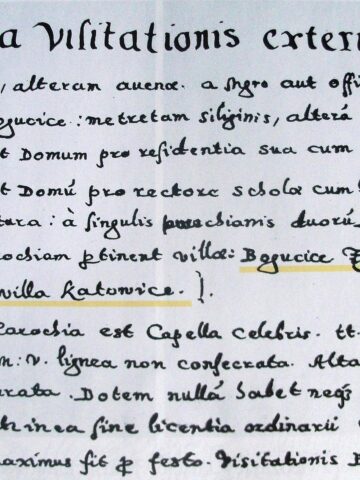 a Visitationis extern
, alteram avenæ. a sngro aut offi
ogucice: metretam siliginis, alterá
t Domum pro residentia sua cum
t Domú pro rectore scholæ cum
tura: à singulis parochianis duorú
ochiam ptinent villæ: Bogucice
villa Katowice. ].
arochia est Capella celebris. tt.
m: v. lignea non consecrata. Alta
rata. Dotem nullá habet neqȝ
hinea sine licentia ordinarii
maximus fit ꝓ festo. Visitationis B